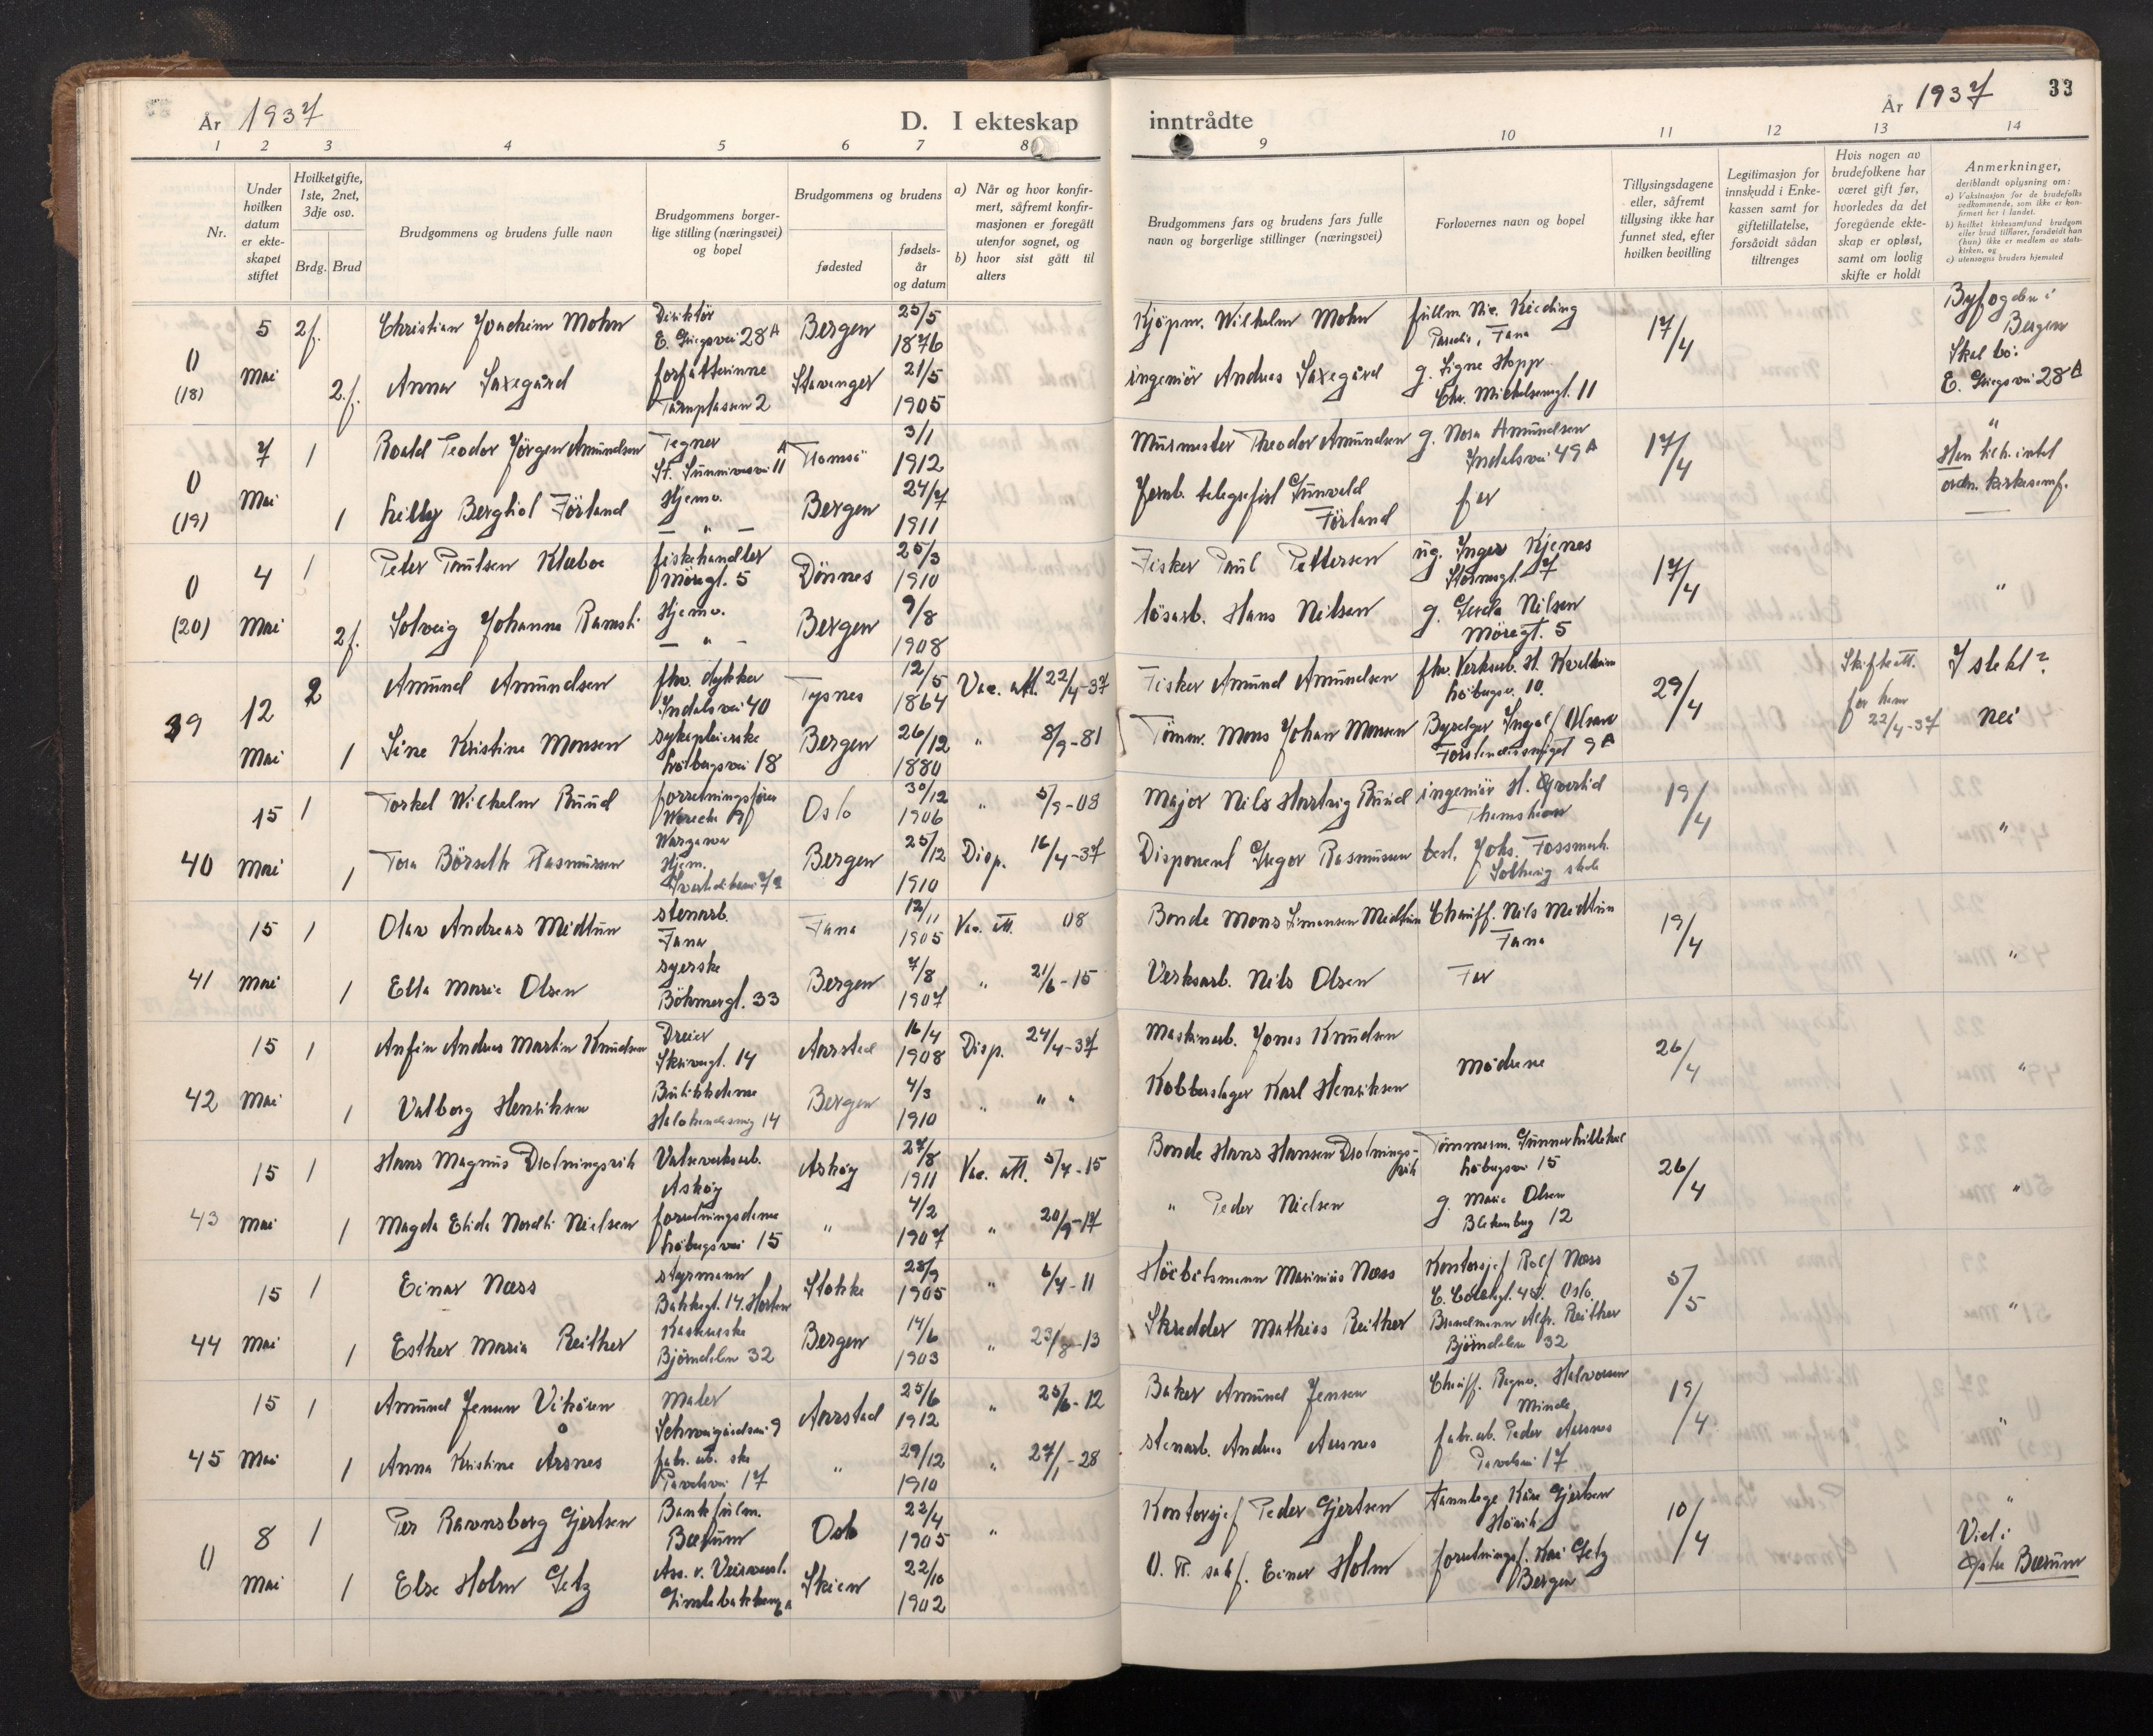 År 1937
D. I ekteskap
inntrådte
År 1937
33
1 2 3 4 5 6 7 8
9 10 11 12 13 14
Nr.
Under
hvilken
datum
er ekte-
skapet
stiftet
Hvilket gifte,
1ste, 2net,
3dje osv.
Brdg. Brud
Brudgommens og brudens fulle navn
Brudgommens borger-
lige stilling (næringsvei)
og bopel
Brudgommens og brudens
fødested
fødsels-
år
og datum
a) Når og hvor konfir-
mert, såfremt konfir-
masjonen er foregått
utenfor sognet, og
b) hvor sist gått til
alters
Brudgommens fars og brudens fars fulle
navn og borgerlige stillinger (næringsvei)
Forlovernes navn og bopel
Tillysingsdagene
eller, såfremt
tillysing ikke har
funnet sted, efter
hvilken bevilling
Legitimasjon for
innskudd i Enke-
kassen samt for
giftetillatelse,
forsåvidt sådan
tiltrenges
Hvis nogen av
brudefolkene har
været gift før,
hvorledes da det
foregående ekte-
skap er opløst,
samt om lovlig
skifte er holdt
Anmerkninger,
deriblandt oplysning om:
a) Vaksinasjon for de brudefolks
vedkommende, som ikke er kon-
firmert her i landet.
b) hvilket kirkesamfund brudgom
eller brud tilhører, forsåvidt han
(hun) ikke er medlem av stats-
kirken, og
c) utensogns bruders hjemsted
0
(18)
5 Mai
2f.
Christian Joachim Mohn
Direktør
E. Griegsvei 28 A
Bergen
25/5
1876
Kjøpm. Wilhelm Mohn
fullm. Nic. Kieding
Paradis, Fana
17/4
Byfogden i
Bergen
Skal bo:
E. Griegsvei 28 A
2.f.
Anna Saxegård
forfatterinne
Tårnplassen 2
Stavanger
21/5
1905
ingeniør Andreas Saxegård
g. Signe Hopp
Chr. Michelsensgt. 11
0
(19)
7 Mai
1
Roald Teodor Jörgen Amundsen
Tegner
St. Sunnivasvei 11 A
Tromsö
3/1
1912
Murmester Theodor Amundsen
g. Nora Amundsen
Indalsvei 49 A
17/4
"
Han tilh. intet
ordn. kirkesamf.
1
Lilly Berghiol Förland
Hjemv.
— " —
Bergen
24/7
1911
Jernb. telegrafist Gunvald
Förland
far
0
(20)
4 Mai
1
Peter Paulsen Klæboe
fiskehandler
Møregt. 5
Dønnes
25/3
1910
Fisker Paul Pettersen
ug. Inger Kjenes
17/4
"
2f.
Solveig Johanne Ramsli
Hjemv.
— " —
Bergen
9/8
1908
løsarb. Hans Nilsen
g. Nilsen
Møregt. 5
39
12 Mai
2
Amund Amundsen
fhv. dykker
Indalsvei 40
Tysnes
12/5
1864
Vac. att. 22/4-37
Fisker Amund Amundsen
fhv. Verksarb. H. Kvalheim
Løbergsv. 10.
29/4
Skifteatt.
for ham
22/4-37
I slekt?
nei
1
Sine Kristine Monsen
sykepleierske
Løbergsvei 18
Bergen
26/12
1880
" 8/9-81
Tømm. Mons Johan Monsen
Byselger Ingolf Olsen
Forstandersmuget 9 A
40
15 Mai
1
Torkel Wilhelm Ruud
forretningsfører
Oslo
30/12
1906
" 5/9-08
Major Nils Hartvig Ruud
ingeniør H. Qvarlid
19/4
"
1
Tora Börseth Rasmussen
Hjem.
Bergen
25/12
1910
Disp. 16/4-37
Disponent Gregor Rasmussen
best. Johs. Fossmark
41
15 Mai
1
Olav Andreas Midtun
stenarb.
Fana
Fana
12/11
1905
Vac. att. 08
Bonde Mons Simonsen Midtun
Chauff. Nils Midtun
Fana
19/4
"
1
Ella Marie Olsen
syerske
Böhmergt. 33
Bergen
7/8
1907
" 21/6-15
Verksarb. Nils Olsen
Far
42
15 Mai
1
Anfin Andreas Martin Knudsen
Dreier
Skrivergt. 14
Aarstad
16/4
1908
Disp. 24/4-37
Maskinarb. Jonas Knudsen
Mødrene
26/4
"
1
Valborg Henriksen
Butikkdame
Bergen
4/3
1910
" " "
Kobberslager Karl Henriksen
43
15 Mai
1
Hans Magnus Drotningsvik
Valseverksarb.
Askøy
Askøy
27/8
1911
Vac. att. 5/7-15
Bonde Hans Hansen Drotnings-
vik
Tømmerm. Gunnar
Løbergsvei 15
26/4
"
1
Magda Elida Nordli Nielsen
forretningsdame
Løbergsvei 15
"
4/2
1907
" 20/9-17
" Peder Nielsen
g. Marie Olsen
Blekenberg 12
44
15 Mai
1
Einar Næss
styrmann
Bakkegt. 14. Horten
Stokke
28/9
1905
" 6/7-11
Høibåtsmann Marinius Næss
Kontorsjef Rolf Næss
Oslo.
5/5
"
1
Esther Maria Reither
Kassererske
Björndalen 32
Bergen
14/6
1903
" 23/8-13
Skredder Mathias Reither
Brandmann Alfr. Reither
Björndalen 32
45
15 Mai
1
Amund Jensen Vikören
Maler
Schweigårdsvei 9
Aarstad
25/6
1912
" 25/6-12
Baker Amund Jensen
Chauff. Ragnv. Halvorsen
Minde
19/4
"
1
Anna Kristine Årsnes
fabr. arb. ske
Pavelsvei 17
"
29/12
1910
" 27/1-28
stenarb. Andreas Aarsnes
fabr. arb. Peder Aarsnes
Pavelsvei 17
0
8 Mai
1
Per Ravnsborg Gjertsen
Bankfullm.
Bærum
Oslo
22/4
1905
"
Kontorsjef Peder Gjertsen
tannlege Kåre Gjertsen
Høvik
10/4
"
Viet i
Østre Bærum
1
Else Holm Getz
Ass. v. Veirvarsl.
Gimlebakken
Skien
22/10
1902
O.R. sakf. Einar Holm
forretningsf. Kai Getz
Bergen